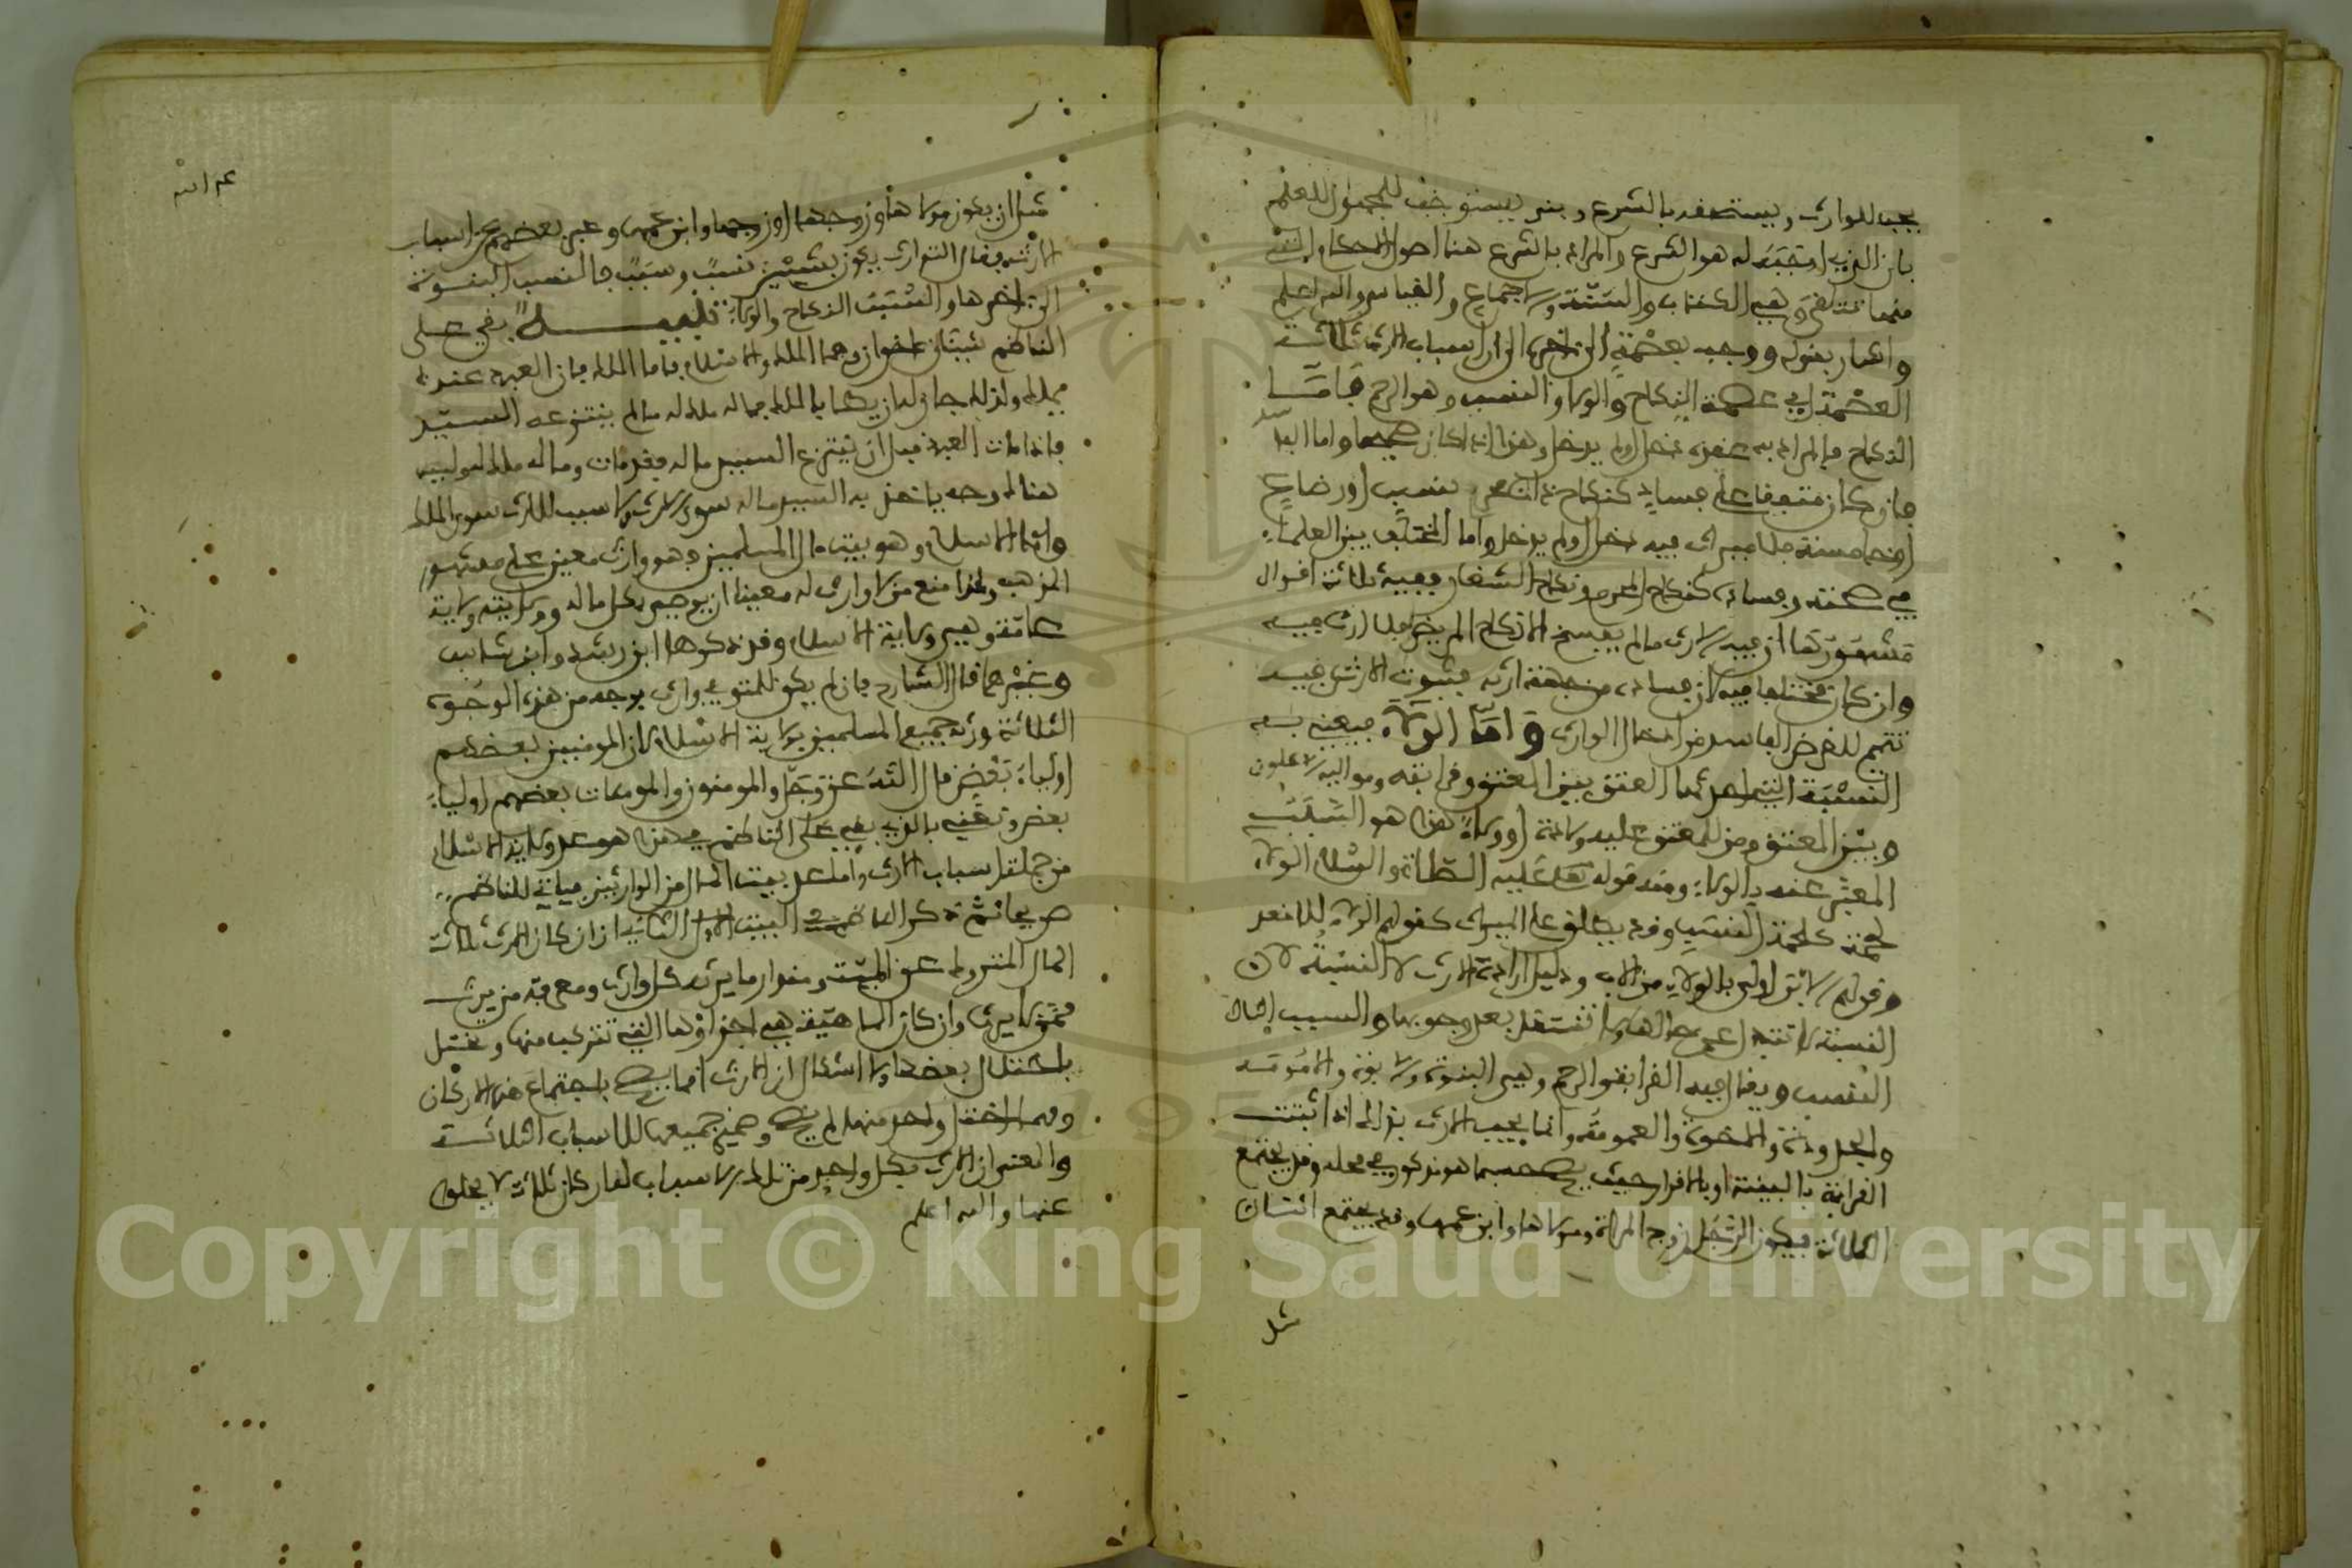 يجب للوارث ويستحقه بالشرع وبنى يستوجب للمجهول للعلم
بان الذي اوجبه له هو الشرع والمراد بالشرع هنا اصول الاحكام التي
منها تتلقى وهي الكتاب والسنة والاجماع والقياس والله اعلم
واشار بقوله ووجب بعصمة الى اخره الى ان اسباب الارث ثلاثة
العصمة اي عصمة النكاح والولاء والنسب وهو الرحم فاما
النكاح فالمراد به عقده دخل او لم يدخل وهذا اذا كان صحيحا واما الفاسد
فان كان متفقا على فساده كنكاح ذات محرم بنسب او رضاع
او خامسة فلا ميراث فيه دخل او لم يدخل واما المختلف بين العلماء
في صحته وفساده كنكاح المحرم ونكاح الشغار ففيه ثلاثة اقوال
مشهورها ان فيه الارث ما لم يفسخ الا نكاح المريض فلا ارث فيه
وان كان مختلفا فيه لان فساده من جهة ارثه فثبوت الارث فيه
تتميم للغرض الفاسد من ادخال الوارث واما الولاء فيعني به
النسبة التي احدثها العتق بين المعتق وقرابته ومواليه الاعلون
وبين المعتق ومن للمعتق عليه ولادة او ولاء هذا هو السبب
المعبر عنه بالولاء ومنه قوله عليه الصلاة والسلام الولاء
لحمة كلحمة النسب وقد يطلق على الميراث كقولهم الولاء للاقعد
وقولهم الابن اولى بالولاء من الاب ودليل ارادة الارث لا النسبة لان
النسبة لا تتبدل عن حالها ولا تنتقل بعد وجوبها والسبب
النسب ويقال فيه القرابة والرحم وهي البنوة والابوة والامومة
والجدودة والاخوة والعمومة وانما يجب الارث بذلك اذا ثبتت
القرابة بالبينة او بالاقرار حيث يصح حسبما هو مذكور في محله وقد يجتمع
الثلاثة فيكون الرجل زوج المراة ومولاها وابن عمها وقد يجتمع اثنتان
مثل
مثل ان يكون مولاها وزوجها او زوجها وابن عمها وعبر بعضهم عن اسباب
الارث فقال التوارث يكون بشيئين نسب وسبب فالنسب البنوة
الى اخرها والسبب النكاح والولاء تنبيه بقي على
الناظم شيئان اخوان وهما الملك والاسلام فاما الملك فان العبد عندنا
يملك ولذلك جاز له ان يطا بالملك فماله ملك له ما لم ينتزعه السيد
فاذا مات العبد قبل ان ينتزع السيد ماله فقد مات وماله ملك له وليس
هنالك وجه ياخذ به السيد ماله سوى الارث ولا سبب للارث سوى الملك
واما الاسلام وهو بيت مال المسلمين وهو وارث معين على مشهور
المذهب ولذا منع من لا وارث له معينا ان يوصي بكل ماله وولايته ولاية
عامة وهي ولاية الاسلام وقد ذكرها ابن رشد وابن شاس
وغيرهما قال الشارح فان لم يكن للمتوفى وارث بوجه من هذه الوجوه
الثلاثة ورثه جميع المسلمين بولاية الاسلام لان المومنين بعضهم
اولياء بعض قال الله عز وجل والمومنون والمومنات بعضهم اولياء
بعض ونعني بالذي بقي على الناظم في هذه هو عد ولاية الاسلام
من جملة اسباب الارث واما عد بيت المال من الوارثين فياتي للناظم
صريحا ثم ذكر الناظم في البيت الاول الثاني ان اركان الارث ثلاثة
المال المتروك عن الميت ومقدار ما يرثه كل وارث ومعرفة من يرث
ممن لا يرث واركان الماهية هي اجزاؤها التي تتركب منها وتختل
باختلال بعضها ولا اشكال ان الارث انما يصح باجتماع هذه الاركان
ومهما اختل واحد منها لم يصح وضمير جميعها للاسباب الثلاثة
والمعنى ان الارث بكل واحد من تلك الاسباب له اركان ثلاث لا يخلو
عنها والله اعلم